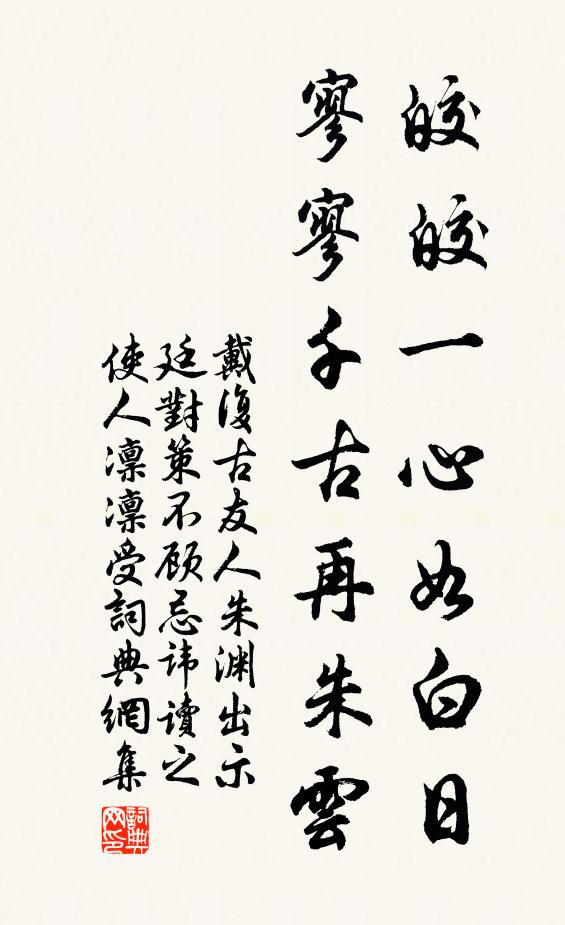 皎皎一心如白日
寥寥千古再朱雲
戴復古友人朱渊出示
廷對策不顾忌讳讀之
使人凛凛受詞典網集
詞典
网印